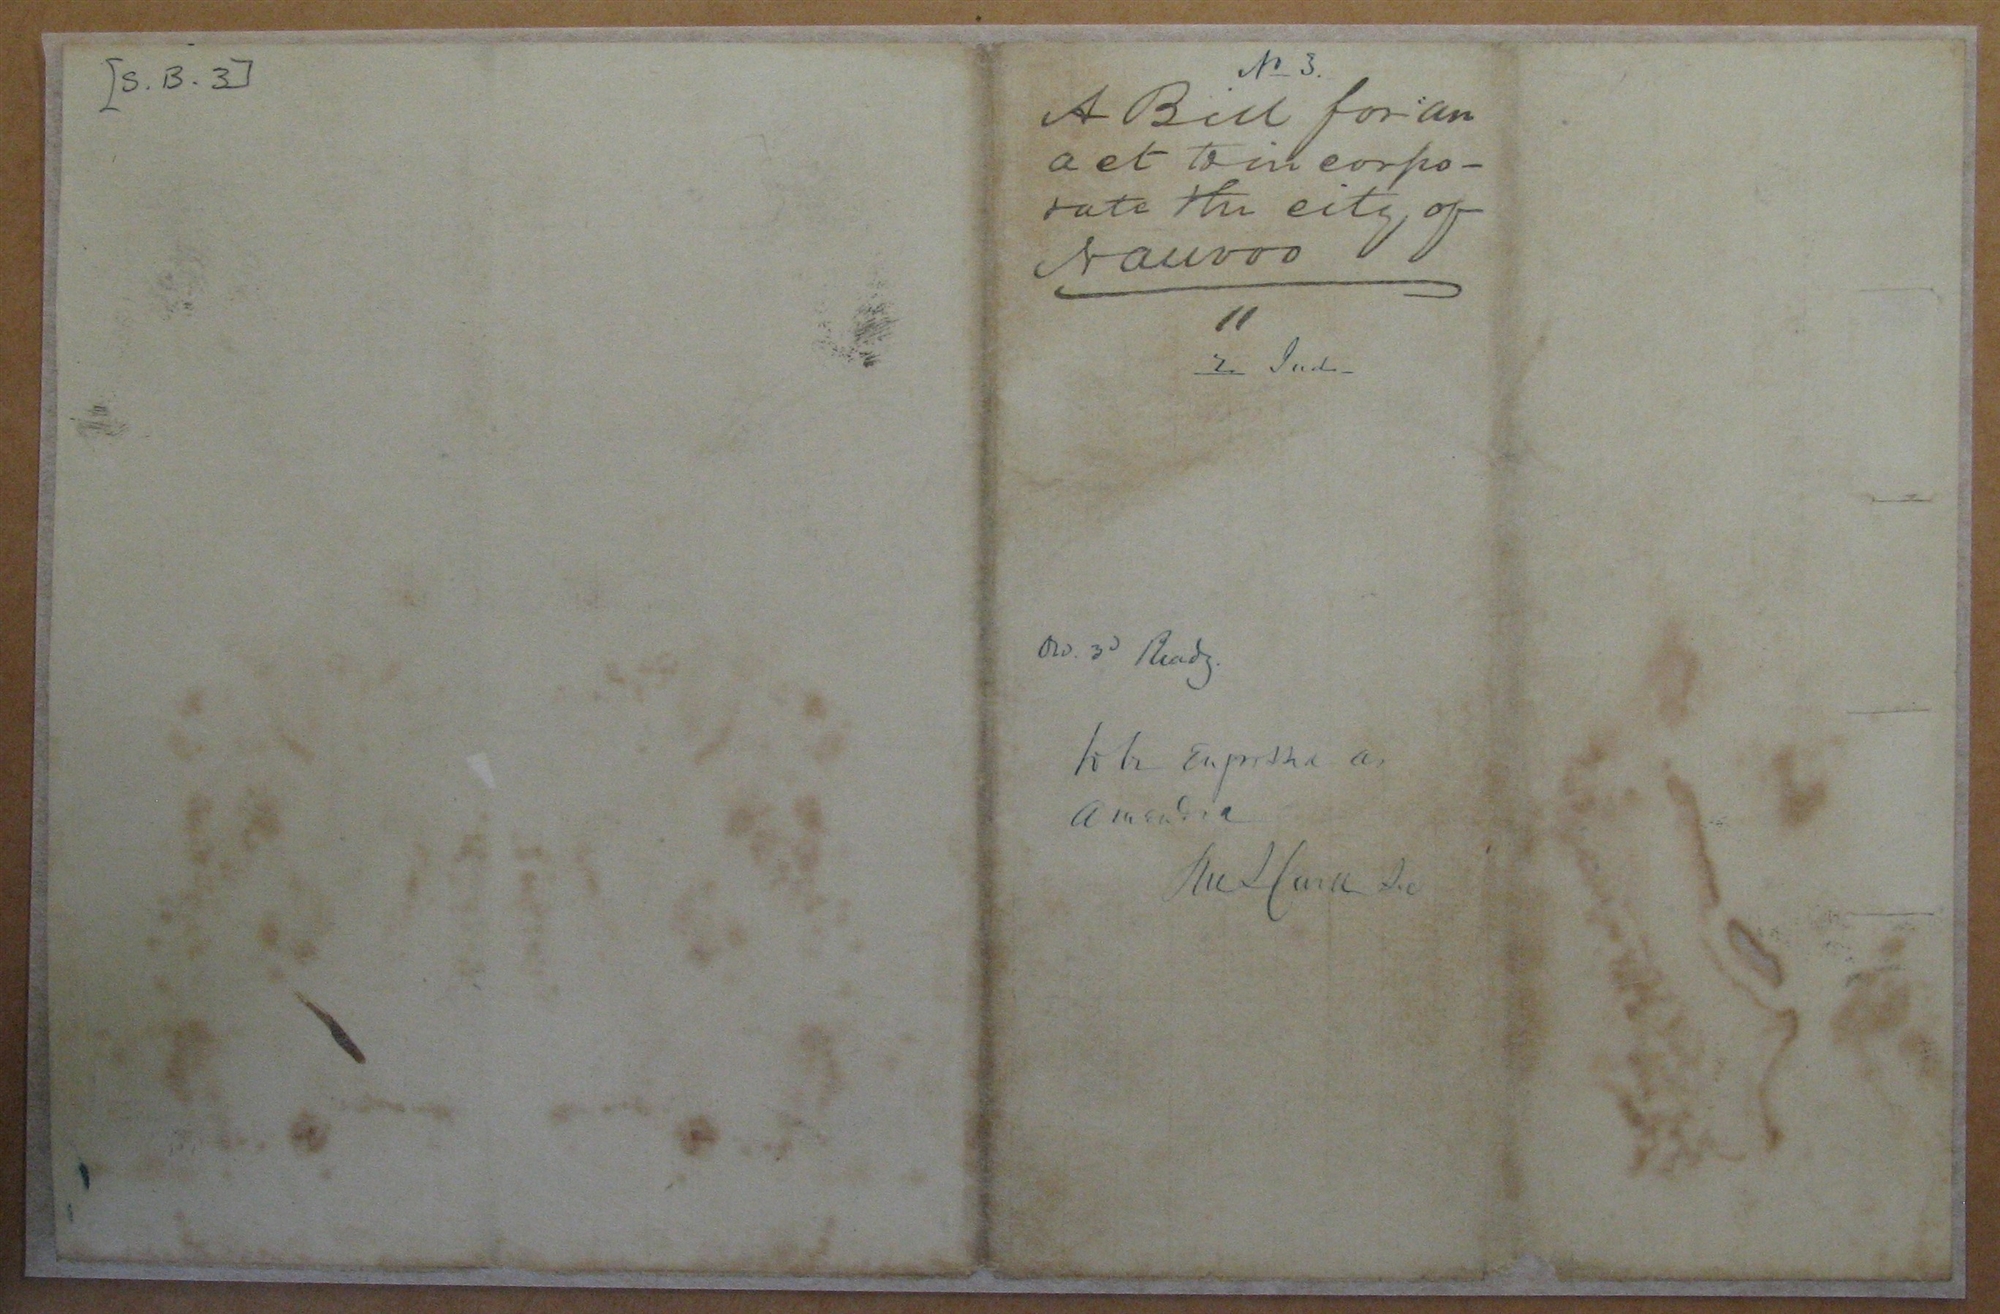 [S. B. 3]
No 3.
A Bill for an
act to incorpo-
rate the city of
Nauvoo
11
2 Jud-
Or. 3d Readg.
to be Engrossed as
amended